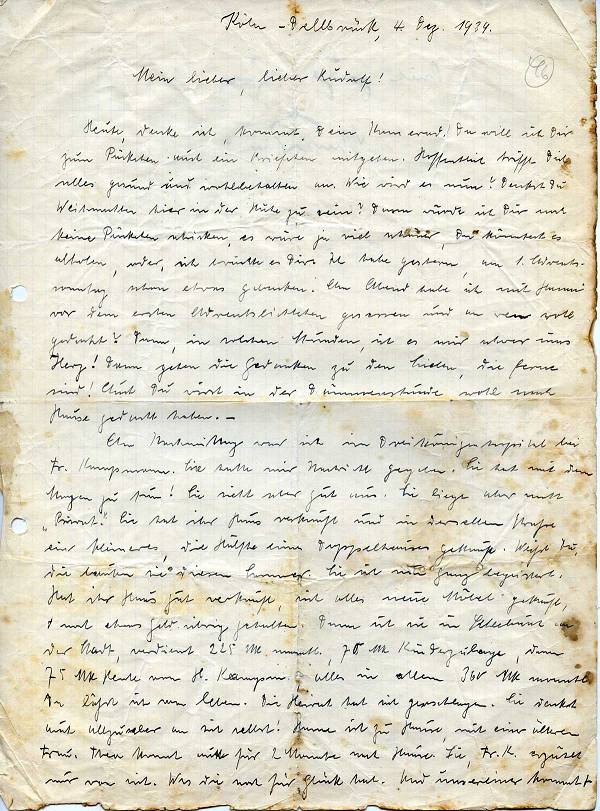 Köln-Dellbrück, 4. Dez. 1939.
46
Mein lieber, lieber Rudolf!
Heute, denke ich, kommt Dein Kamerad. Da will ich Dir
zum Päckchen auch ein Briefchen mitgeben. Hoffentlich trifft Dich
alles gesund und wohlbehalten an. Wie wird es nun? Denkst Du
Weihnachten hier in der Nähe zu sein? Dann würde ich Dir auch
keine Päckchen schicken, es wäre ja viel schöner, Du könntest es
abholen, oder, ich brächte es Dir. Ich habe gestern, am 1. Advents-
sonntag schon etwas gebacken! Am Abend habe ich mit Hanni
vor dem ersten Adventslichtchen gesessen und an wen wohl
gedacht? Dann, in solchen Stunden, ist es mir schwer ums
Herz! Dann gehen die Gedanken zu den Lieben, die ferne
sind! Auch Du wirst in der Dämmerstunde wohl nach
Hause gedacht haben. –
Am Nachmittag war ich im Dreikönigenhospital bei
Fr. Kampmann. Sie hatte mir Nachricht gegeben. Sie hat mit dem
Magen zu tun! Sie sieht aber gut aus. Sie liegt aber nicht
"Privat". Sie hat ihr Haus verkauft und in derselben Straße
ein kleineres, die Hälfte eines Doppelhauses gekauft. Weißt Du,
die bauten sie diesen Sommer. Sie ist nun ganz
Hat ihr Haus gut verkauft, sich alles neue Möbel gekauft,
u. noch etwas Geld übrig gehalten. Dann ist sie in
der Stadt, verdient 225 Mk monatl., 70 Mk Kinderzulage, dann
75 Mk Rente von H. Kampm. alles in allem 360 Mk monatl.
Da läßt sich von leben. Die Heirat hat sich zerschlagen. Sie denkt
auch allzusehr an sich selbst! Hanne ist zu Hause mit einer älteren
Frau. Theo kommt für 2 Monate nach Hause. Sie, Fr. K. erzählt
nur von sich. Was die noch für Glück hat. Und unsereiner kommt